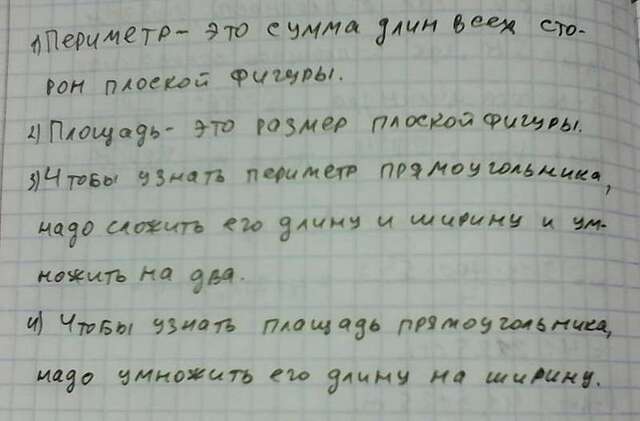 1) Периметр- это сумма длин всех сто-
рон плоской фигуры.
2) Площадь- это размер плоской фигуры.
3) Чтобы узнать периметр прямоугольника,
надо сложить его длину и ширину и ум-
ножить на два.
4) Чтобы узнать площадь прямоугольника,
надо умножить его длину на ширину.